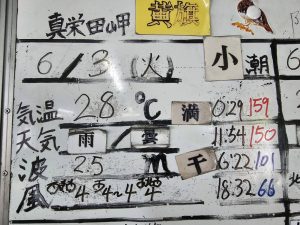 真栄田岬 黄旗
6/3(火) 小潮
気温 28 ℃ 満 0:29 159
天気 雨/雲 11:54 150
波 2.5 m 干 6:22 101
風 4 4~4 4 18:32 66